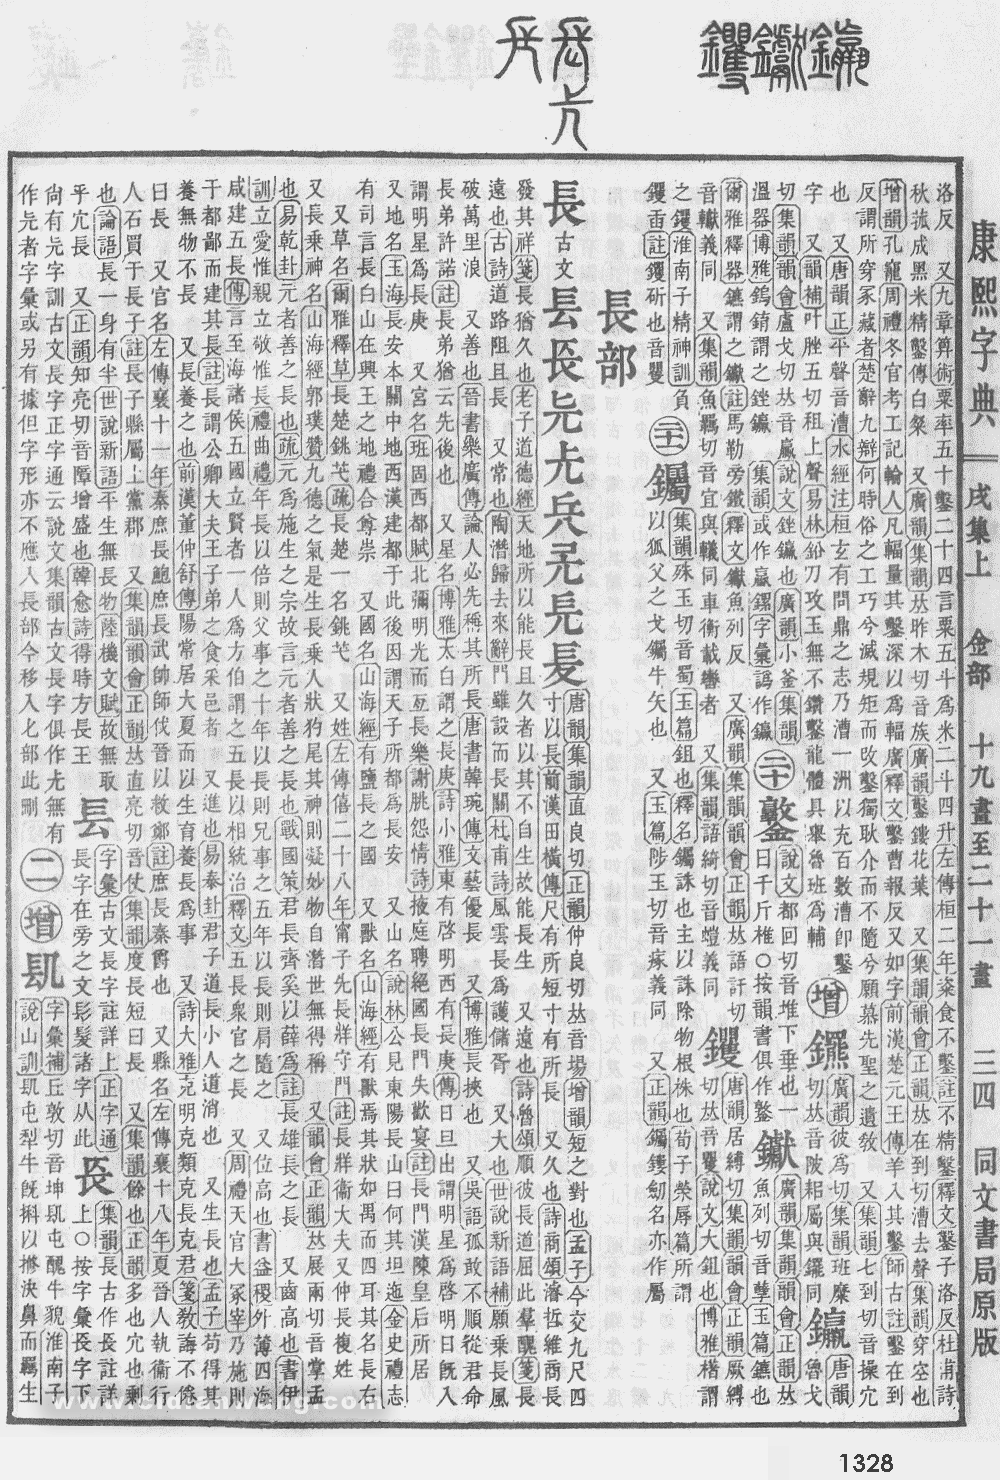 康熙字典 戌集上 金部 十九畫至二十一畫 三四 同文書局原版
洛反 又九章算術粟率五十鑿二十四言粟五斗爲米二斗四升左傳桓二年粢食不鑿註不精鑿釋文鑿子洛反杜甫詩
秋菰成黑米精鑿傳白粲 又廣韻集韻𠀤昨木切音族廣韻鑿鏤花葉 又集韻韻會正韻𠀤在到切漕去聲集韻穿空也
增韻孔竉周禮冬官考工記輪人凡輻量其鑿深以爲輻廣釋文鑿曹報反又如字前漢楚元王傳羊入其鑿師古註鑿在到
反謂所穿冢藏者楚辭九辯何時俗之工巧兮滅規矩而攺鑿獨耿介而不隨兮願慕先聖之遺敎 又集韻七到切音操穴
也 又唐韻正平聲音漕水經注桓玄有問鼎之志乃漕一洲以充百數漕卽鑿
字 又韻補叶脞五切租上聲易林鉛刀攻玉無不鑽鑿龍體具舉魯班爲輔
增
𨰃
廣韻彼爲切集韻班糜
切𠀤音陂耜屬與鑼同
鑃
唐韻
魯戈
切集韻韻會盧戈切𠀤音羸說文銼鑃也廣韻小釜集韻
溫器博雅鎢錥謂之銼鑃 集韻或作𩰫鏍字彙譌作鑃
二十
鑿
說文都回切音堆下垂也一
曰千斤椎○按韻書俱作鐜
钀
廣韻集韻韻會正韻𠀤
魚列切音孽玉篇鑣也
爾雅釋器鑣謂之钀註馬勒旁鐵釋文钀魚列反 又廣韻集韻韻會正韻𠀤語訐切
音轙義同 又集韻魚羈切音宜與轙同車衡載轡者 又集韻語綺切音螘義同
钁
唐韻居縛切集韻韻會正韻厥縛
切𠀤音矍說文大鉏也博雅櫡謂
之钁淮南子精神訓負
钁臿註钁斫也音矍
二十一
钃
集韻殊玉切音蜀玉篇鉏也釋名钃誅也主以誅除物根株也荀子榮辱篇所謂
以狐父之戈钃牛矢也 又玉篇陟玉切音瘃義同 又正韻钃鏤劒名亦作屬
長部
長
古文
镸𠑷𠑿
唐韻集韻直良切正韻仲良切𠀤音場增韻短之對也孟子今交九尺四
寸以長前漢田橫傳尺有所短寸有所長 又久也詩商頌濬哲維商長
發其祥箋長猶久也老子道德經天地所以能長且久者以其不自生故能長生 又遠也詩魯頌順彼長道屈此羣醜箋長
遠也古詩道路阻且長 又常也陶潛歸去來辭門雖設而長關杜甫詩風雲長爲護儲胥 又大也世說新語補願乗長風
破萬里浪 又善也晉書樂廣傳論人必先稱其所長唐書韓琬傳文藝優長 又博雅長挾也 又吳語孤敢不順從君命
長弟許諾註長弟猶云先後也 又星名博雅太白謂之長庚詩小雅東有啓明西有長庚傳日旦出謂明星爲啓明日旣入
謂明星爲長庚 又宮名班固西都賦北彌明光而亙長樂謝朓怨情詩掖庭聘絕國長門失歡宴註長門漢陳皇后所居
又地名玉海長安本關中地西漢建都于此後因謂天子所都爲長安 又山名說林公見東陽長山曰何其坦迤金史禮志
有司言長白山在興王之地禮合尊崇 又國名山海經有鹽長之國 又獸名山海經有獸焉其狀如禺而四耳其名長右
又草名爾雅釋草長楚銚芅疏長楚一名銚芅 又姓左傳僖二十八年甯子先長牂守門註長牂衞大夫又仲長複姓
又長乗神名山海經郭璞贊九德之氣是生長乗人狀狗尾其神則凝妙物自潛世無得稱 又韻會正韻𠀤展兩切音掌孟
也易乾卦元者善之長也疏元爲施生之宗故言元者善之長也戰國策君長齊奚以薛爲註長雄長之長 又齒高也書伊
訓立愛惟親立敬惟長禮曲禮年長以倍則父事之十年以長則兄事之五年以長則肩隨之 又位高也書益稷外薄四海
咸建五長傳言至海諸侯五國立賢者一人爲方伯謂之五長以相統治釋文五長衆官之長 又周禮天官大冢宰乃施則
于都鄙而建其長註長謂公卿大夫王子弟之食采邑者 又進也易泰卦君子道長小人道消也 又生長也孟子苟得其
養無物不長 又長養之也前漢董仲舒傳陽常居大夏而以生育養長爲事 又詩大雅克明克類克長克君箋敎誨不倦
曰長 又官名左傳襄十一年秦庶長鮑庶長武帥師伐晉以救鄭註庶長秦爵也 又縣名左傳襄十八年夏晉人執衞行
人石買于長子註長子縣屬上黨郡 又集韻韻會正韻𠀤直亮切音仗集韻度長短曰長 又集韻餘也正韻多也宂也剩
也論語長一身有半世說新語平生無長物陸機文賦故無取
乎宂長 又正韻知亮切音障增盛也韓愈詩得時方長王
镸
字彙古文長字註詳上正字通
長字在旁之文髟髮諸字从此
𨱗
集韻長古作𨱗註詳
上○按字彙𨱗長字下
尙有𠑷字訓古文長字正字通云說文集韻古文長字俱作𠑷無有
作𠑷者字彙或另有據但字形亦不應入長部今移入匕部此刪
二
增
镹
字彙補丘敦切音坤镹屯醜牛貌淮南子
說山訓镹屯犁牛旣㸹以㹅決鼻而羈生
1328